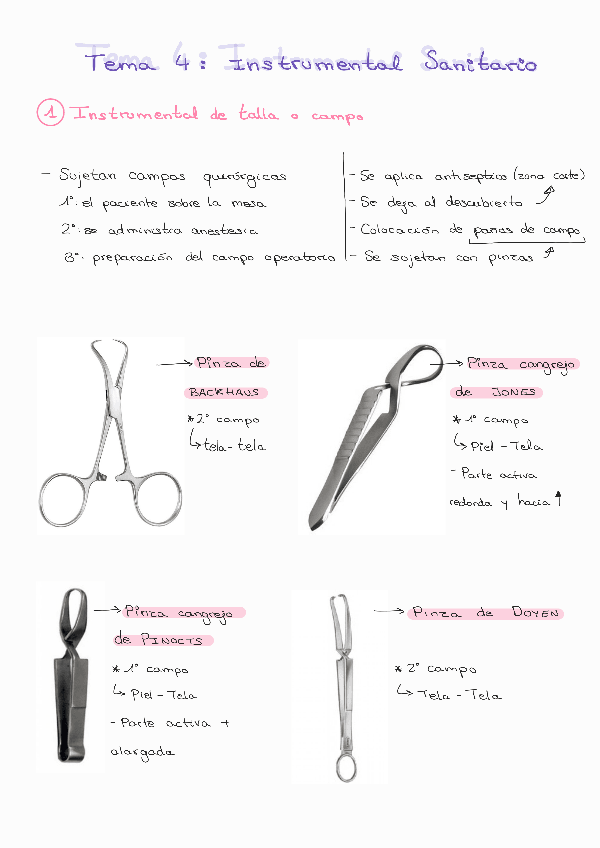 Tema 4: Instrumental Sanitario
1 Instrumental de talla o campo
- Sujetan campos quirúrgicos
1º: el paciente sobre la mesa
2º: se administra anestesia
3º: preparación del campo operatorio
- Se aplica antiséptico (zona corte)
- Se deja al descubierto
- Colocación de paños de campo
- Se sujetan con pinzas
→ Pinza de
BACKHAUS
* 2º campo
↳ tela-tela
→ Pinza cangrejo
de JONES
* 1º campo
↳ Piel - Tela
- Parte activa
redonda y hacia ↑
→ Pinza cangrejo
de PINOCTS
* 1º campo
↳ Piel - Tela
- Parte activa +
alargada
→ Pinza de DOYEN
* 2º campo
↳ Tela - Tela